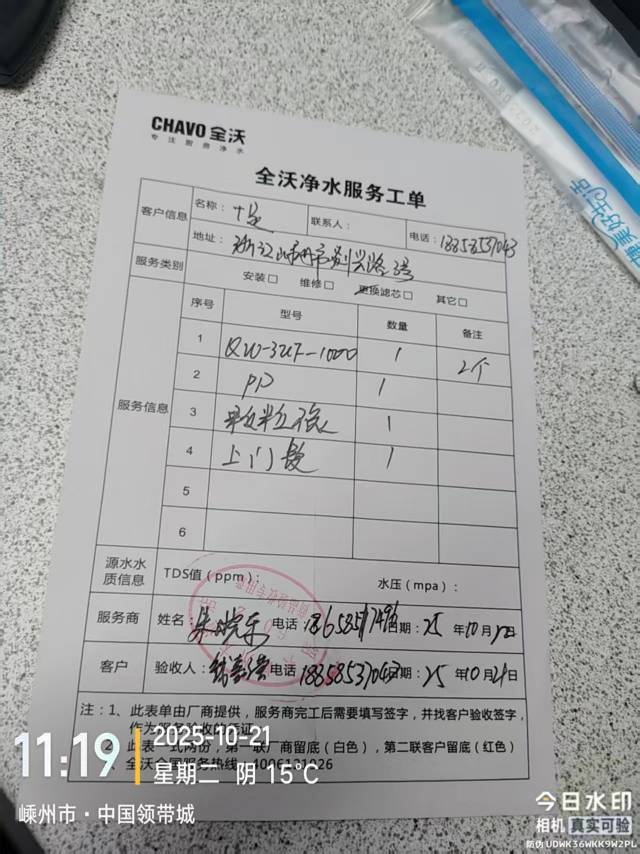 CHAVO 全沃
专注厨房净水
全沃净水服务工单
客户信息 名称：十足 联系人： 电话：18858537043
地址：浙江嵊州市 路 3号
服务类别 安装□ 维修□ 更换滤芯□ 其它□
序号 型号 数量 备注
服务信息
1 QW-3UF-1000 1 2个
2 PP 1
3 1
4 上门费 1
5
6
源水水质信息 TDS值（ppm）： 水压（mpa）：
服务商 姓名： 电话 日期：25 年10月 日
客户 验收人： 电话 18858537043 日期：25 年10月21日
注：1、此表单由厂商提供，服务商完工后需要填写签字，并找客户验收签字，
作为服务验收的凭证
2、此表一式两份，第一联厂商留底（白色），第二联客户留底（红色）
3、全沃全国服务热线：4006131026
11:19 2025-10-21
星期二 阴 15℃
嵊州市·中国领带城
今日水印
相机 真实可验
防伪 UDWK36WKK9W2PL
美好生活